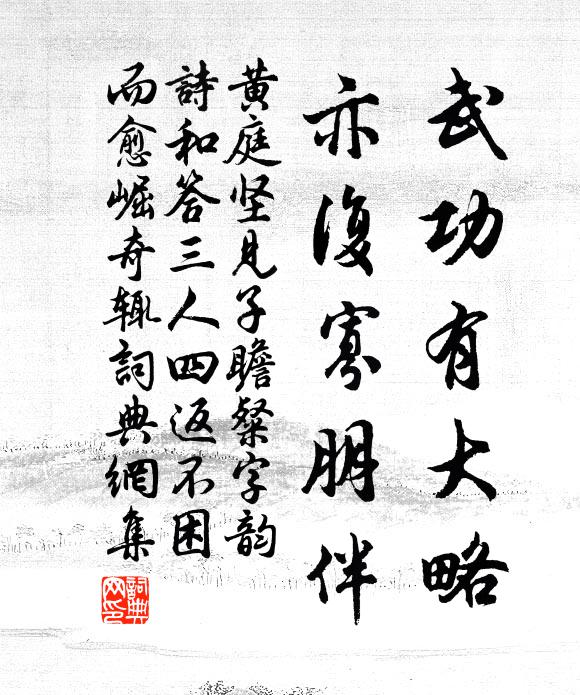 武功有大略
亦復寡朋伴
黄庭坚見子瞻粲字韵
詩和答三人四返不困
而愈崛奇辄詞典網集
詞典網印